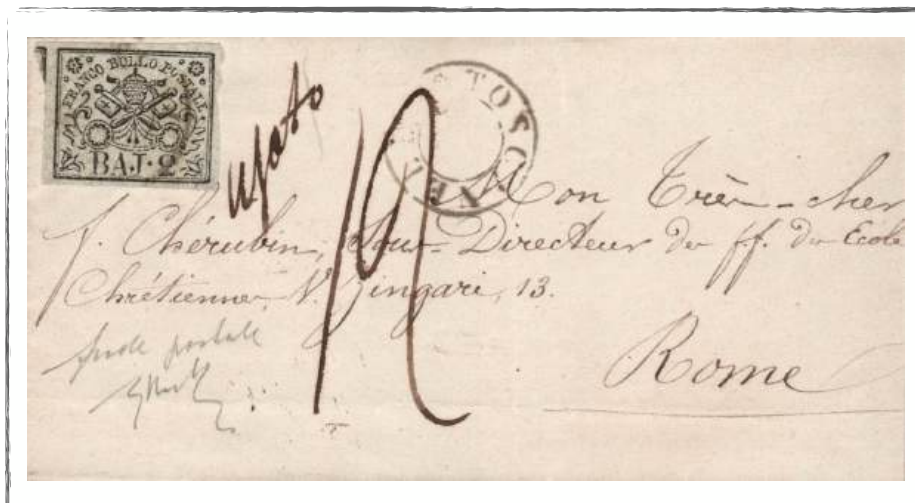 FRANCO BOLLO POSTALE
BAJ. 2
usato
12
TOSC
Mon Très-cher
f. Chérubin, Sous-Directeur des ff. des Ecoles
Chrétiennes, V. Zingari, 13.
frode postale
Rome